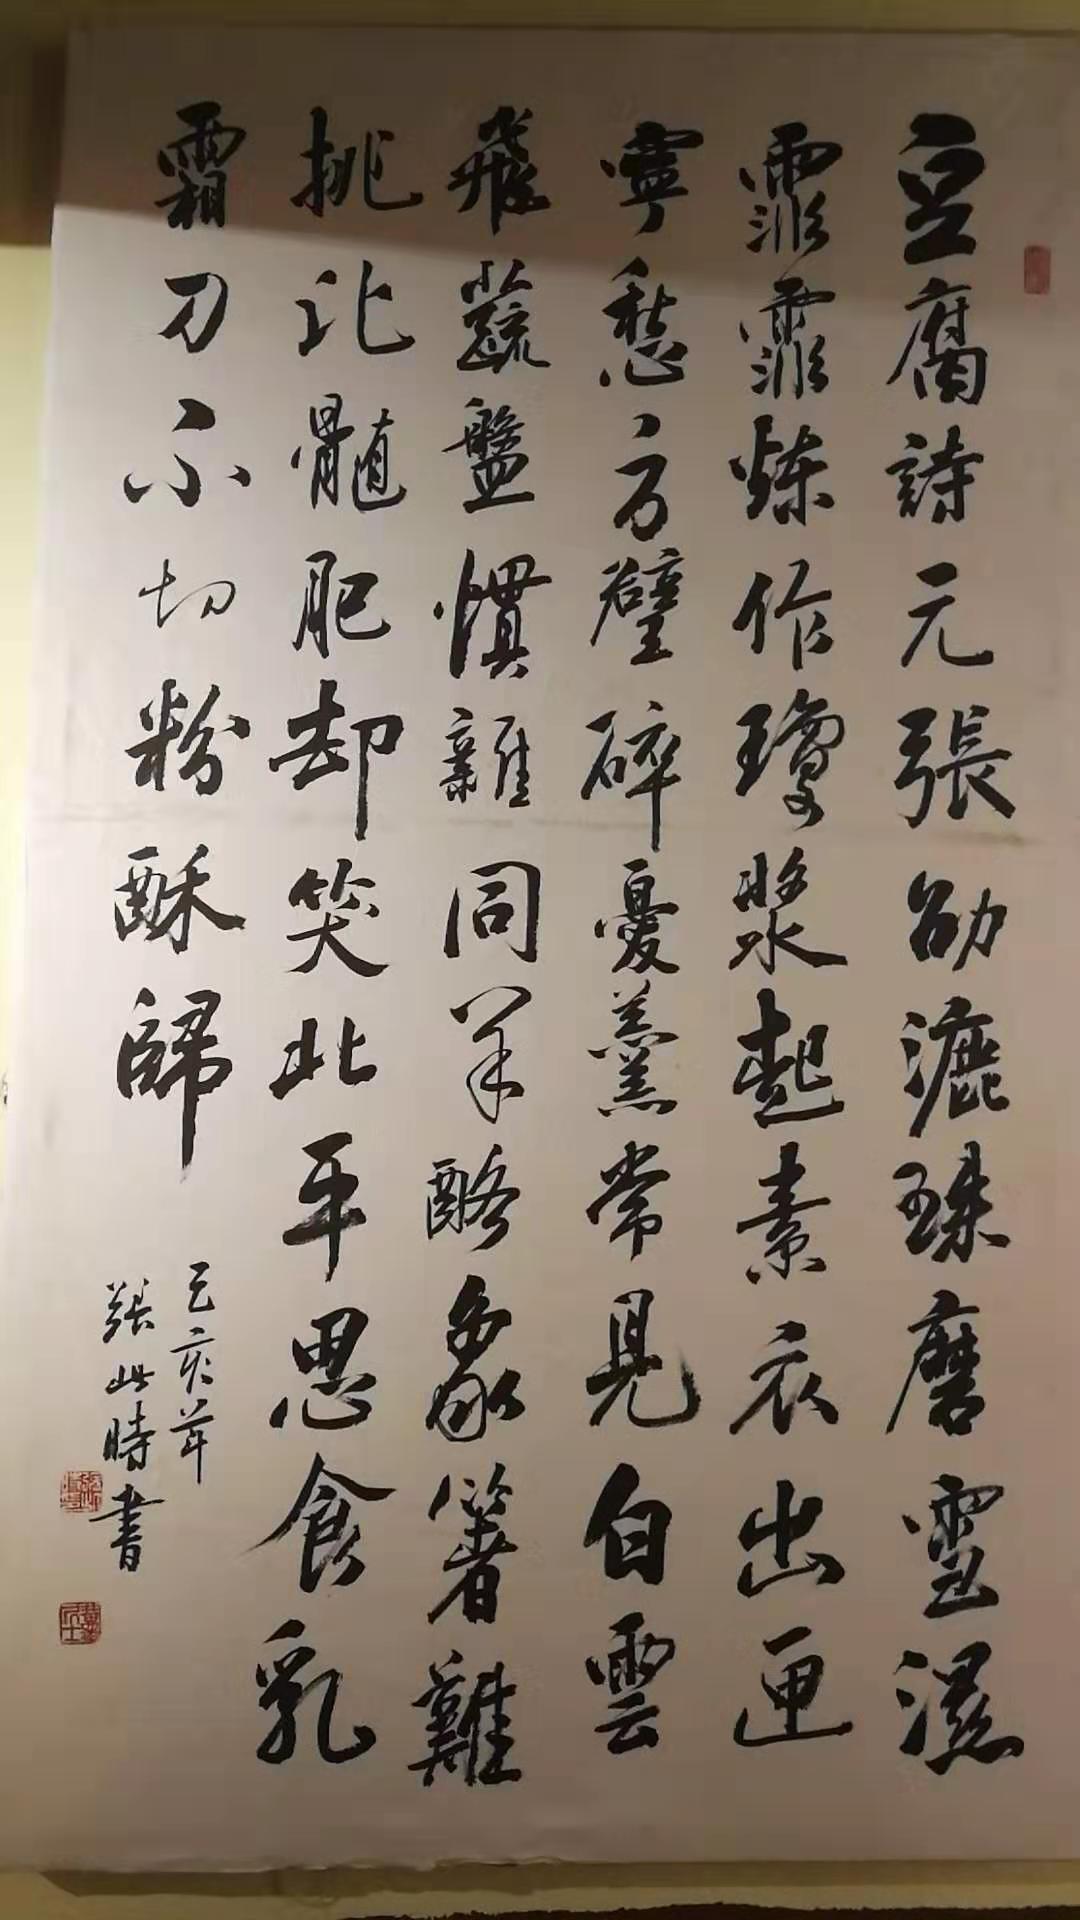 豆腐詩元張劭漉珠磨雪濕
霏霏煉作瓊漿起素衣出匣
寧愁方璧碎憂羹常見白雲
飛蔬盤慣雜同羊酪象箸難
挑比髓肥却笑北平思食乳
霜刀不切粉酥歸
己亥年
張此時書